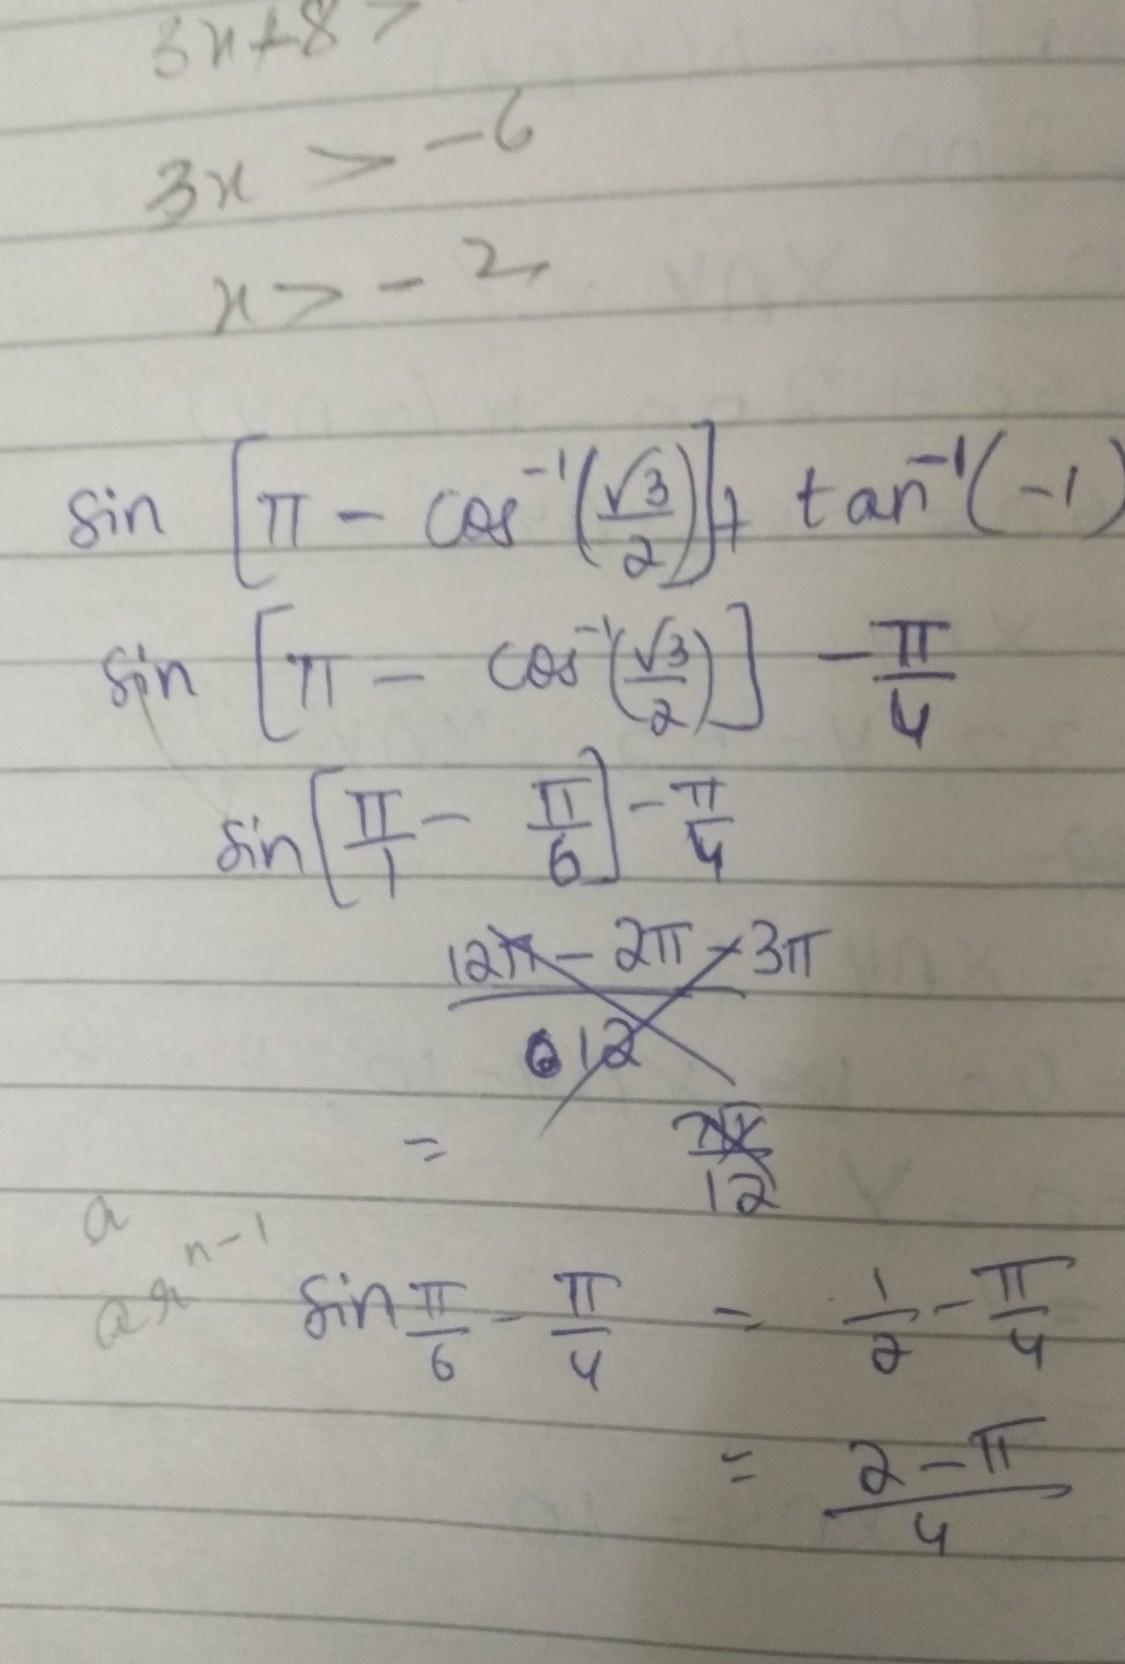 3x+8 >
3x > -6
x > -2
sin [π - cos⁻¹(√3/2)] + tan⁻¹(-1)
sin [π - cos⁻¹(√3/2)] - π/4
sin [π/1 - π/6] - π/4
12π - 2π - 3π
12
=
12
a
ar^(n-1)
sin π/6 - π/4 = 1/2 - π/4
= (2-π)/4